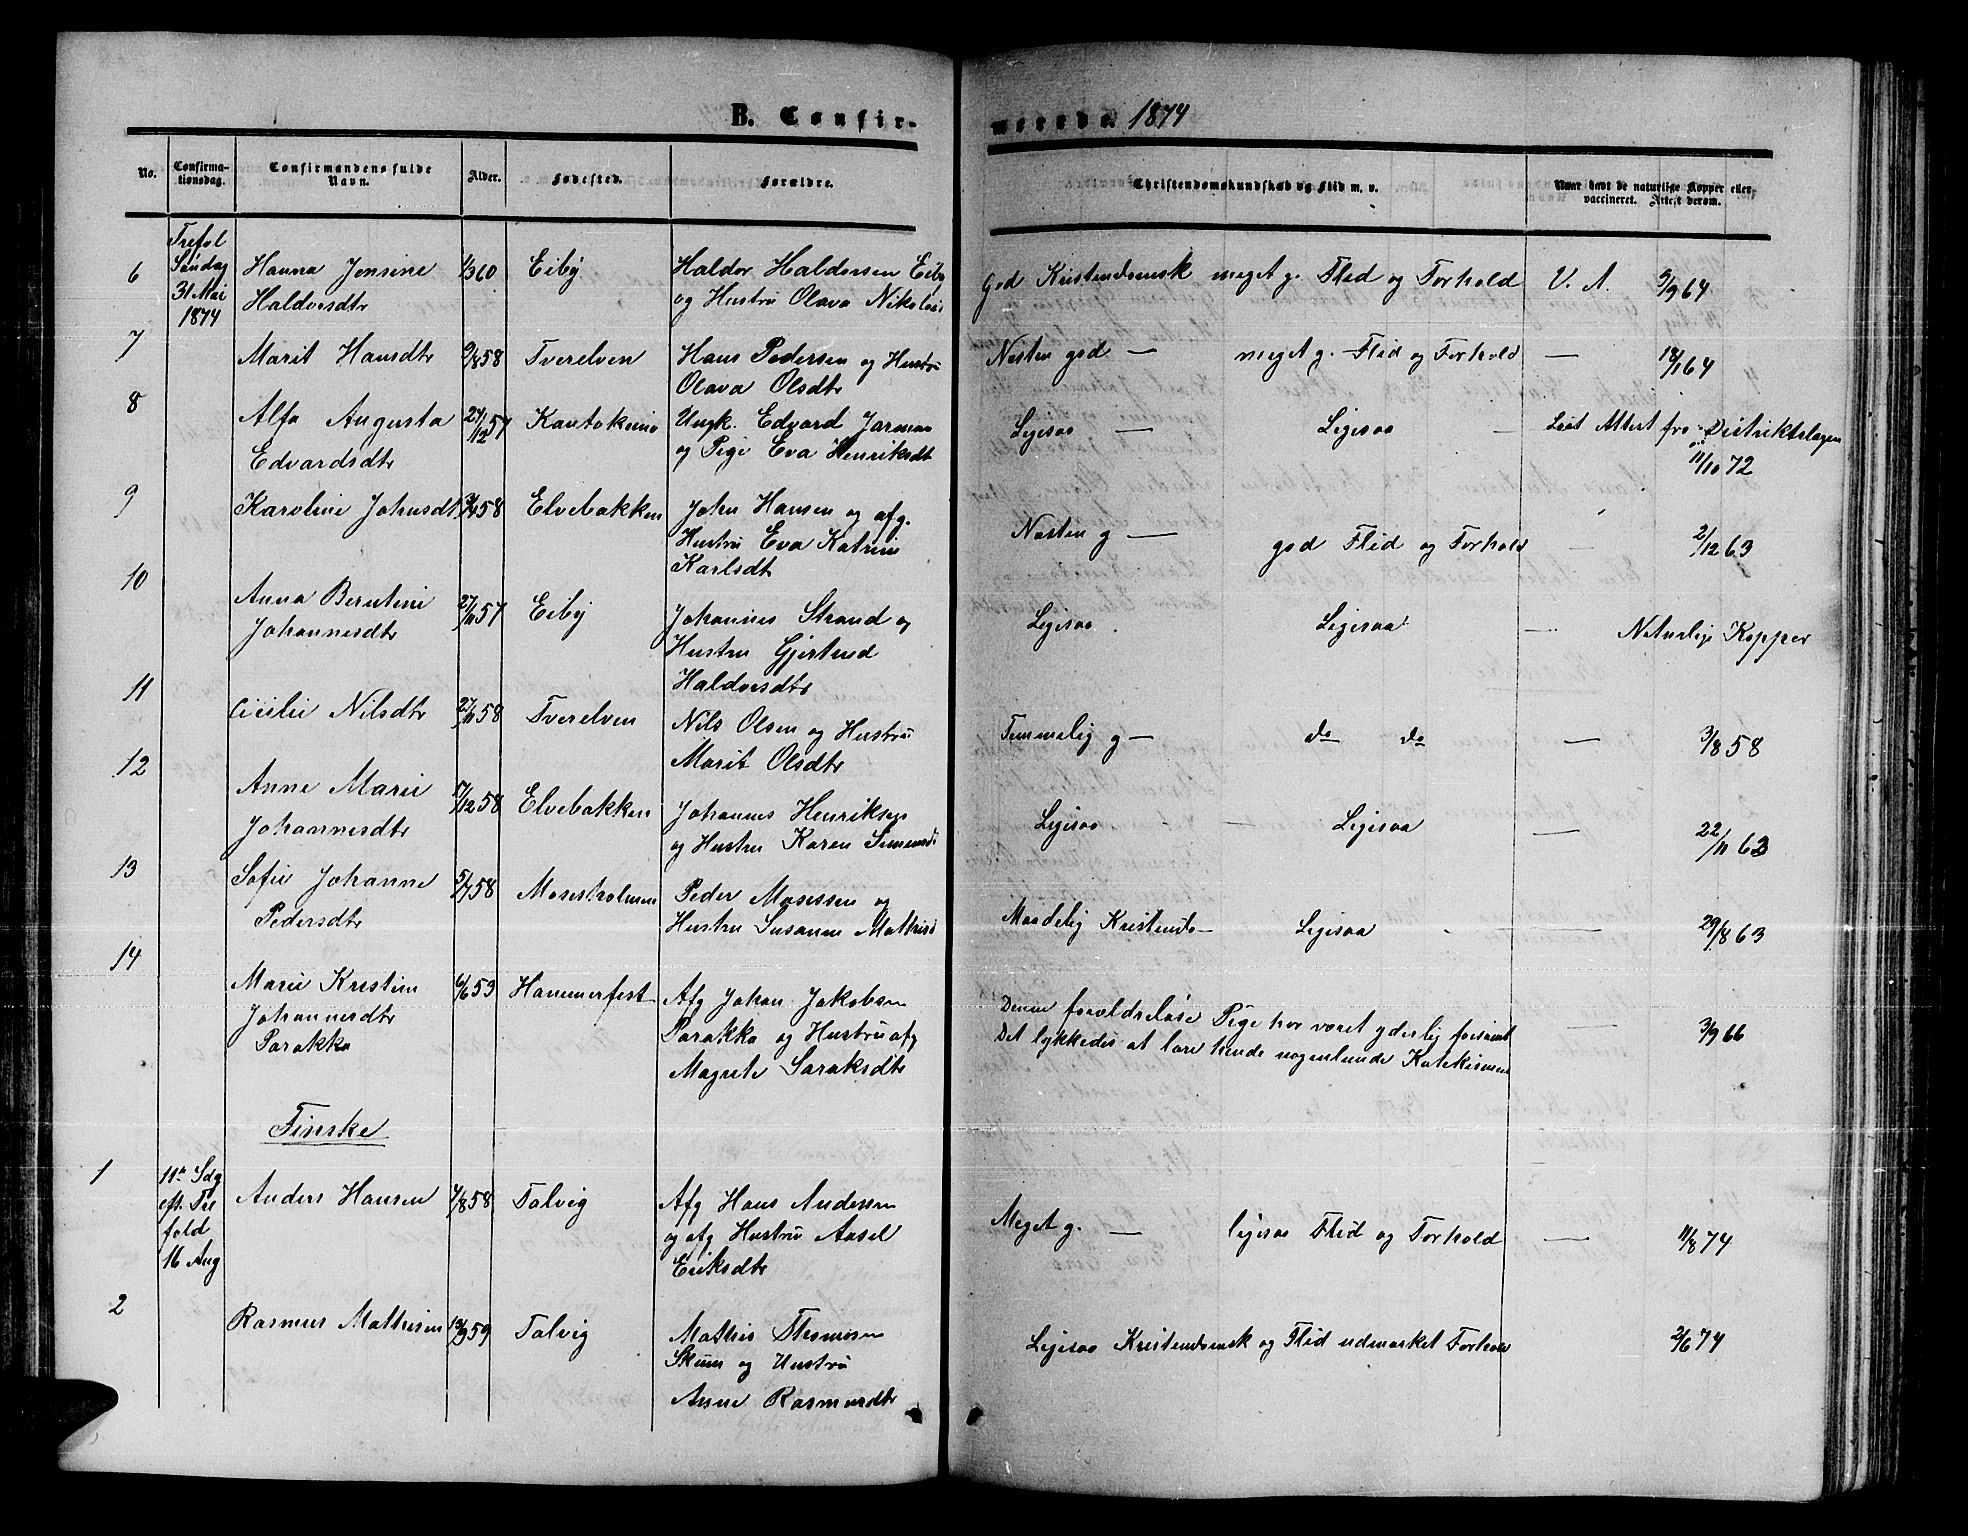 B. Confir-
merede. 1874
No.
Confirma-
tionsdag.
Confirmandens fulde
Navn.
Alder.
Fødested.
Forældre.
Christendomskundskab og Flid m. v.
Naar havt de naturlige Kopper eller
vaccineret. Attest derom.
6
Trefol
Søndag
31 Mai
1874
Hanna Jensine
Haldorsdtr
1/3 60
Eiby
Haldor Haldorsen Eiby
og Hustru Olava Nikolais
God Kristendomsk meget g. Flid og Forhold
V. A. 5/9 64
7
Marit Hansdtr
9/8 58
Tverelven
Hans Pedersen og Hustru
Olava Olsdtr
Næsten god — meget g. Flid og Forhold
— 18/1 64
8
Alfa Augusta
Edvardsdtr
27/12 57
Kautokeino
Ungk. Edvard Jarman
og Pige Eva Henriksdt
Ligesaa — Ligesaa —
Løst Attest fra Distriktslægen
11/10 72
9
Karoline Johnsdtr
58
Elvebakken
John Hansen og afg.
Hustru Eva Katrine
Karlsdtr
Næsten g — god Flid og Forhold
— 2/12 63
10
Anna Berntine
Johannesdtr
27/11 57
Eiby
Johannes Strand og
Hustru Gjertrud
Haldorsdtr
Ligesaa Ligesaa
— Naturlige Kopper
11
Cecilie Nilsdtr
27/11 58
Tverelven
Nils Olsen og Hustru
Marit Olsdtr
Temmelig g — do do
— 3/8 58
12
Anne Marie
Johannesdtr
17/12 58
Elvebakken
Johannes Henriksen
og Hustru Karen Simonsd
Ligesaa — Ligesaa
— 22/11 63
13
Sofie Johanne
Pedersdtr
5/7 58
Mosesholmen
Peder Mosessen og
Hustru Susanne Mathisd
Maadelig Kristendo— Ligesaa
— 29/8 63
14
Marie Kristine
Johannesdtr
Parakka
6/6 53
Hammerfest
Afg Johan Jakobsen
Parakka og Hustru afg
Magrete Saraksdtr
Denne forældreløse Pige har været yderlig forsømt
Det lykkedes at lære hende nogenlunde Katekismen
— 3/9 66
Finske
1
11te Sdg
eft. Tre
fold
16 Aug
Anders Hansen
4/8 58
Talvig
Afg Hans Andersen
og afg Hustru Aasel
Eriksdtr
Meget g. — ligesaa Flid og Forhold
— 11/8 74
2
Rasmus Mathisen
13/9 59
Talvig
Mathis Thomesen
Skum og Hustru
Anne Rasmusdtr
Ligesaa Kristendomsk og Flid udmærket Forhold
2/6 74